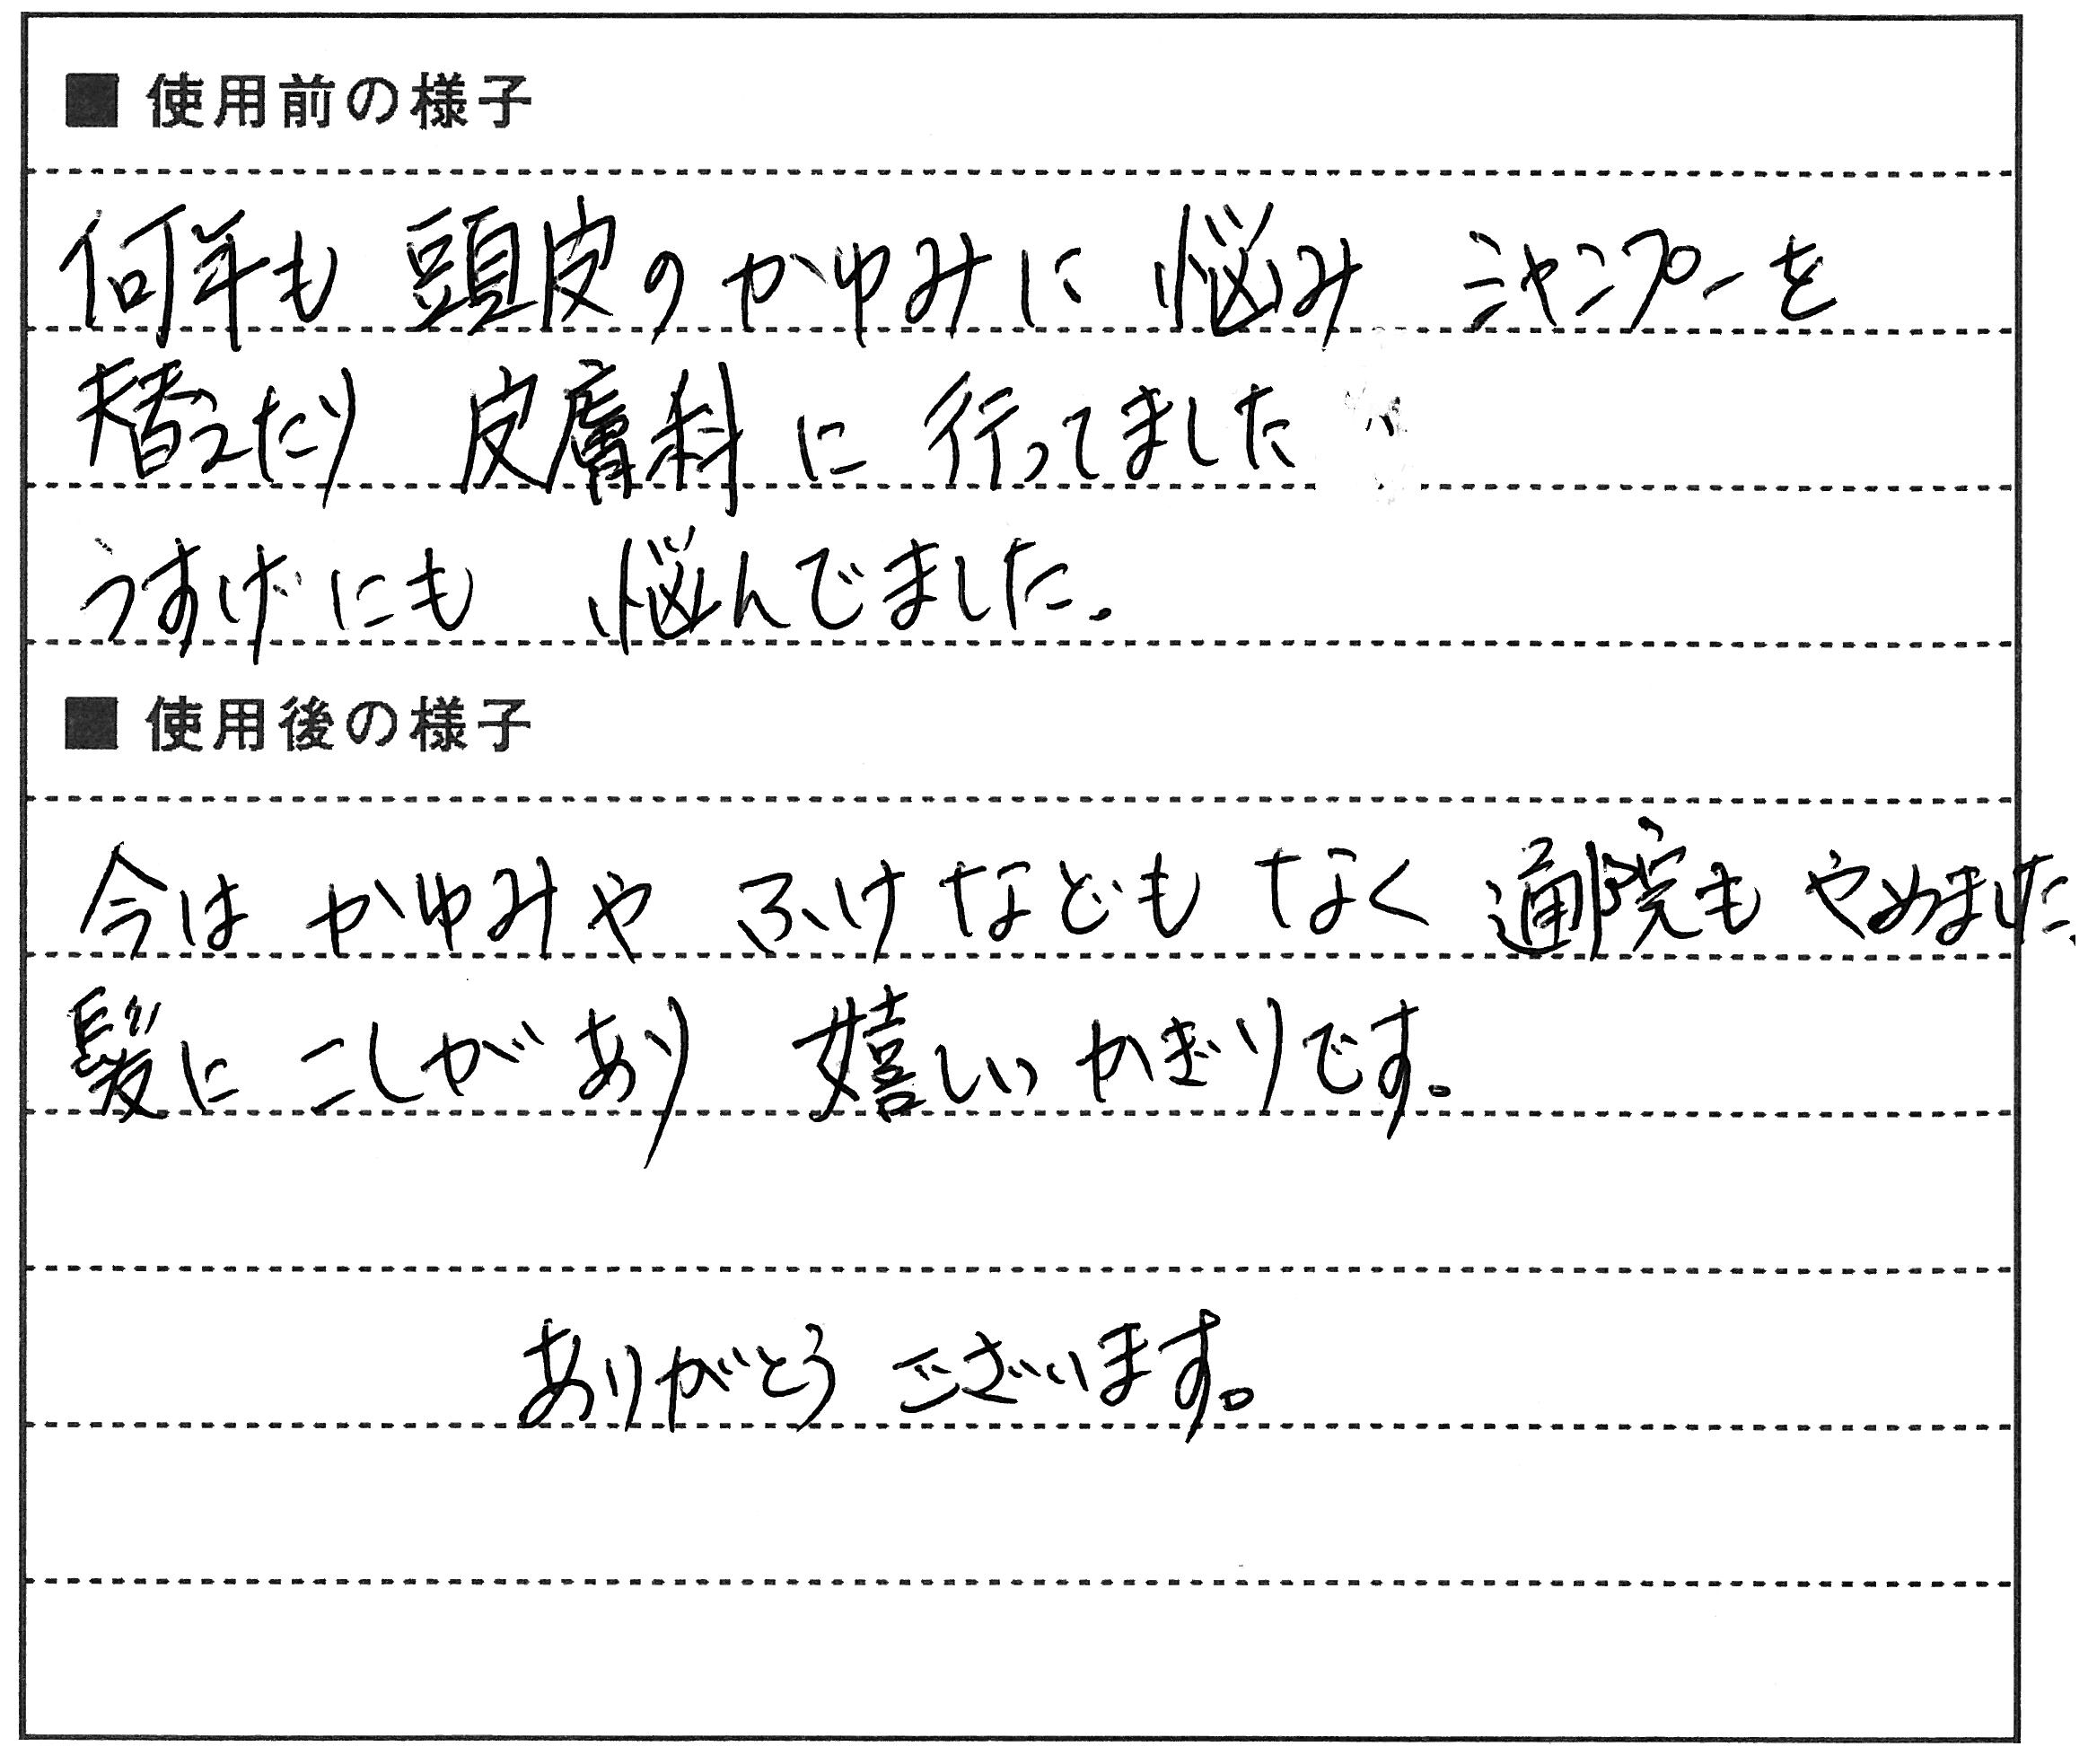 ■ 使用前の様子
何年も 頭皮の かゆみに 悩み シャンプーを
替えたり 皮膚科に 行ってました
うすげにも 悩んでました.
■ 使用後の様子
今は かゆみや ふけなども なく 通院も やめました.
髪に こしが あり 嬉しい かぎりです。
ありがとう ございます。